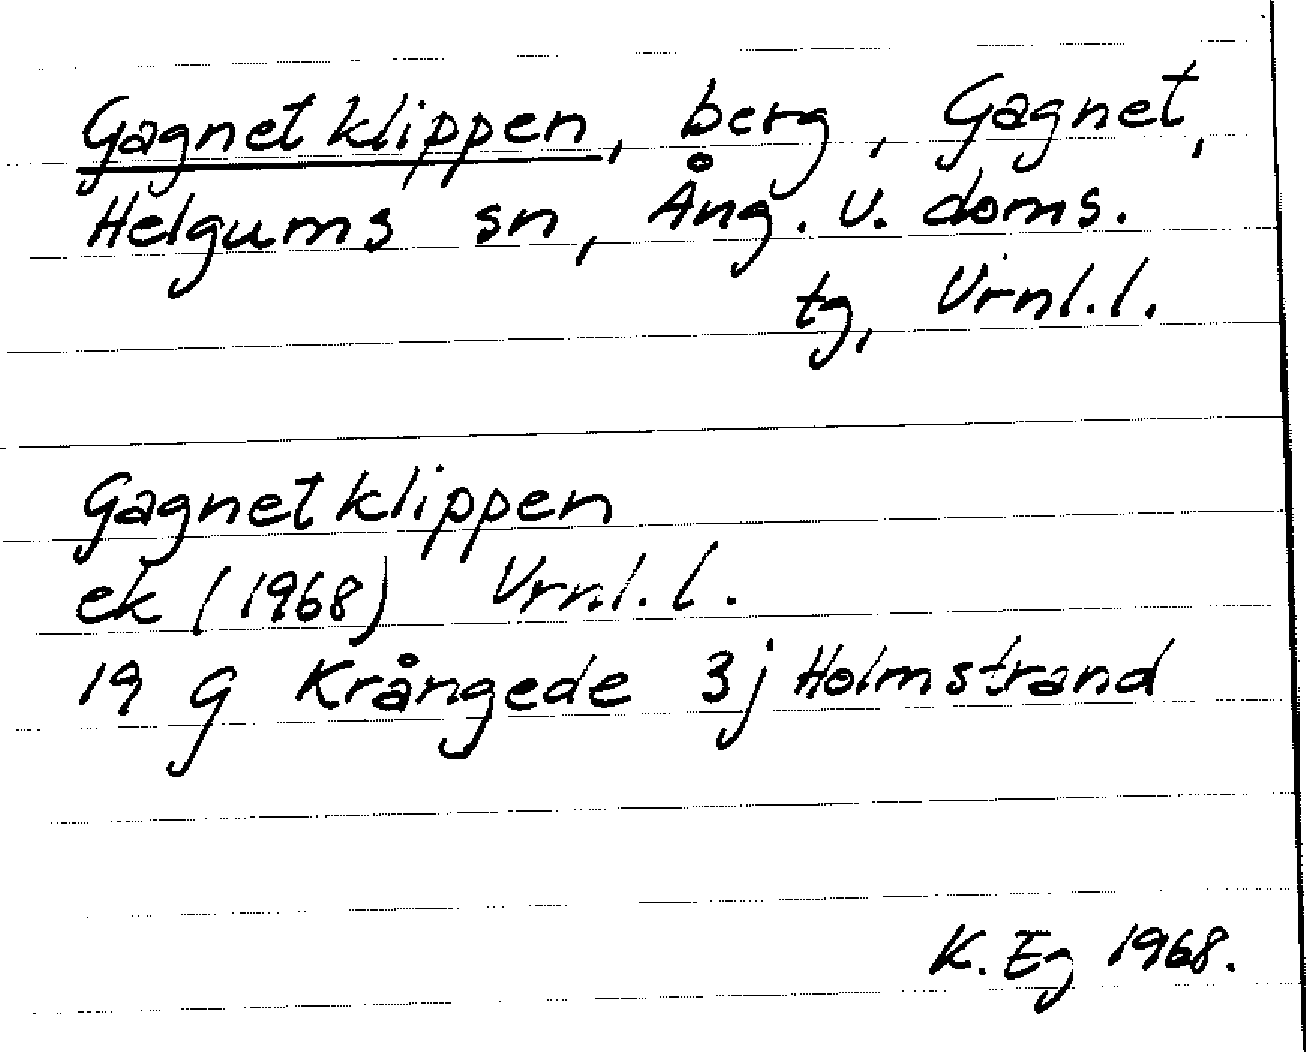 Gagnetklippen, berg, Gagnet,
Helgums sn, Ång. v. doms.
tg, Vrnl.l.
Gagnetklippen
ek (1968) Vrnl.l.
19 g Krångede 3j Holmstrand
K. Eg 1968.